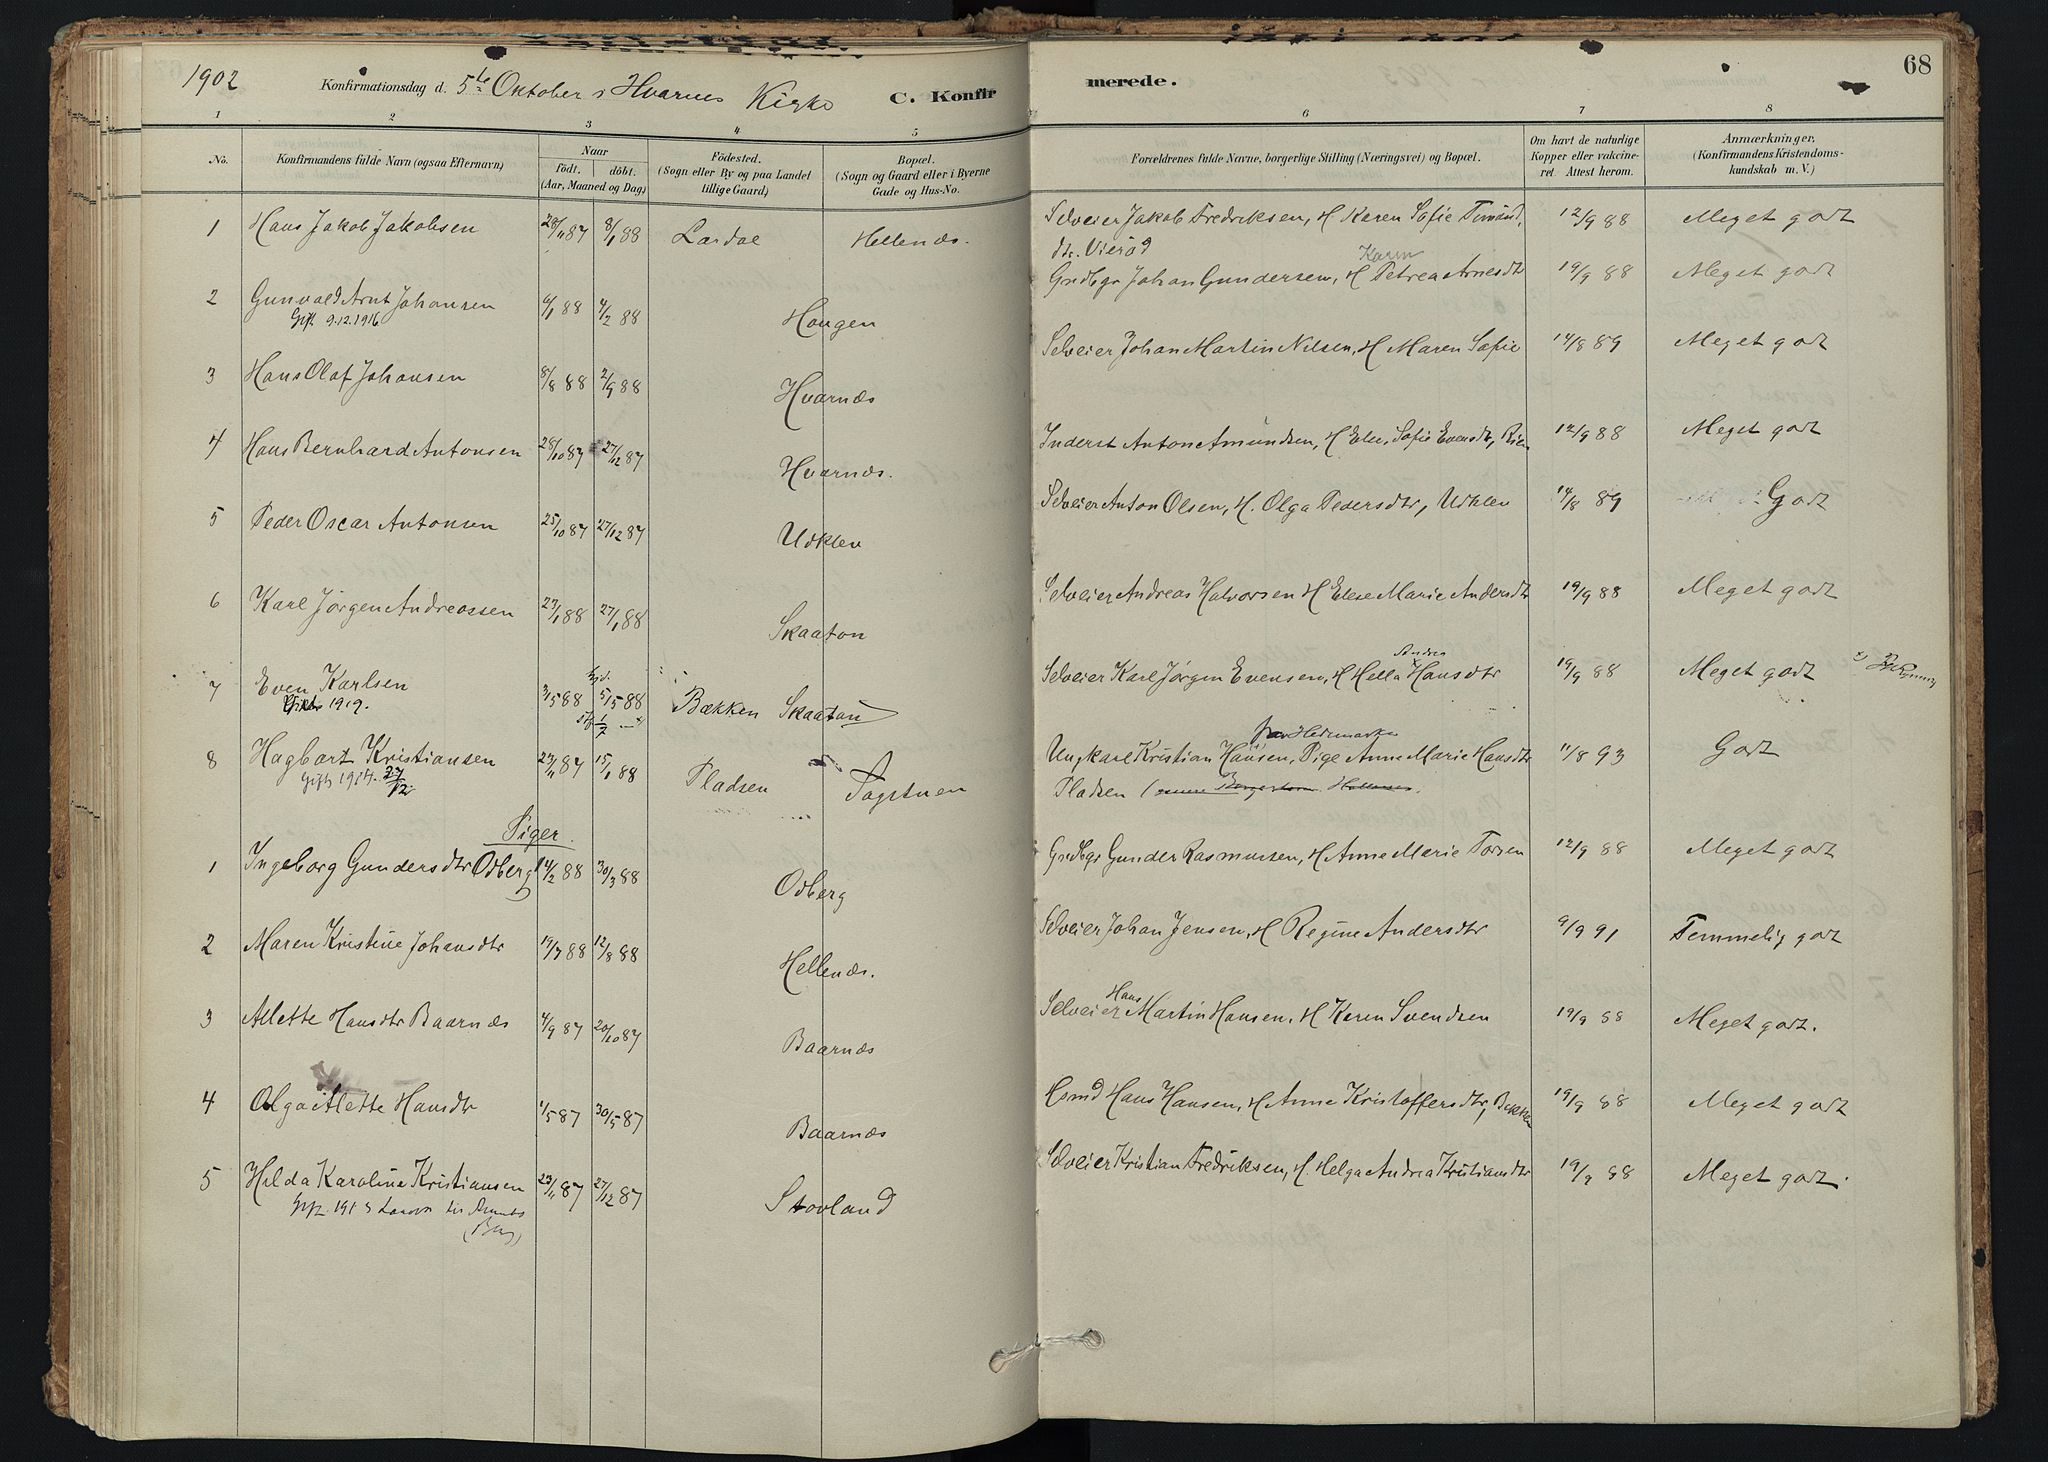 1902 Konfirmationsdag d. 5te Oktober i Hvarnes Kirke C. Konfir
merede. 68
1 2 3 4 5
6 7 8
No. Konfirmandens fulde Navn (ogsaa Efternavn) Naar født. døbt. (Aar, Maaned og Dag) Fødested. (Sogn eller By og paa Landet tillige Gaard) Bopæl. (Sogn og Gaard eller i Byerne Gade og Hus-No.
Forældrenes fulde Navne, borgerlige Stilling (Næringsvei) og Bopæl. Om havt de naturlige Kopper eller vakcineret. Attest herom. Anmærkninger, (Konfirmandens Kristendomskundskab m. V.)
1 Hans Jakob Jakobsen 28/11 87 8/1 88 Lardal Hellenæs.
Selveier Jakob Fredriksen, H Karen Sofie 12/9 88 Meget godt
dtr. Vierød
2 Gunvald Arnt Johansen 6/1 88 4/2 88 Haugen
Gift 9.12.1916
Karen
Grdbgr Johan Gundersen, H Petrea Arnesdtr 19/9 88 Meget godt
3 Hans Olaf Johansen 8/8 88 2/9 88 Hvarnæs
Selveier Johan Martin Nilsen, H Maren Sofie 14/8 89 Meget godt
4 Hans Bernhard Antonsen 28/10 87 27/12 87 Hvarnæs.
Inderst Anton Amundsen, H Else Sofie Evensdtr, 12/9 88 Meget godt
5 Peder Oscar Antonsen 25/10 87 27/12 87 Udklev
Selveier Anton Olsen, H. Olga Pedersdtr, Udklev 14/8 89 Godt
6 Karl Jørgen Andreassen 27/1 88 Skaaton
Selveier Andreas Halvorsen H Else Marie Andersdtr 19/9 88 Meget godt
7 Even Karlsen 3/5 88 5/5 88 Bækken Skaaton
1919.
Andrea
Selveier Karl Jørgen Evensen, H Hella Hansdtr 19/9 88 Meget godt
8 Hagbart Kristiansen 15/1 88 Pladsen Sagstuen
Gift 1914. 27/12
fra Hedemarken
Ungkarl Kristian Hansen, Pige Anne Marie Hansdtr 11/8 93 Godt
Pladsen
Piger.
1 Ingeborg Gundersdtr Odberg 14/2 88 30/3 88 Odberg
Grdbgr Gunder Rasmussen, H Anne Marie Torsen 12/9 88 Meget godt
2 Maren Kristine Johansdtr 19/7 88 12/8 88 Hellenæs.
Selveier Johan Jensen, H Regine Andersdtr 9/9 91 Temmelig godt
3 Alette Hansdtr Baarnæs 4/9 87 20/10 87 Baarnæs
Hans
Selveier Martin Hansen, H Karen Svendsen 19/9 88 Meget godt.
4 Olga Alette Hansdtr 1/5 87 30/5 87 Baarnæs
Hsmd Hans Hansen, H Anne Kristoffersdtr, Bekken 19/9 88 Meget godt
5 Hilda Karoline Kristiansen 27/12 87 Stovland
Gift 1913
Selveier Kristian Fredriksen, H. Helga Andrea Kristiansdtr 19/9 88 Meget godt.